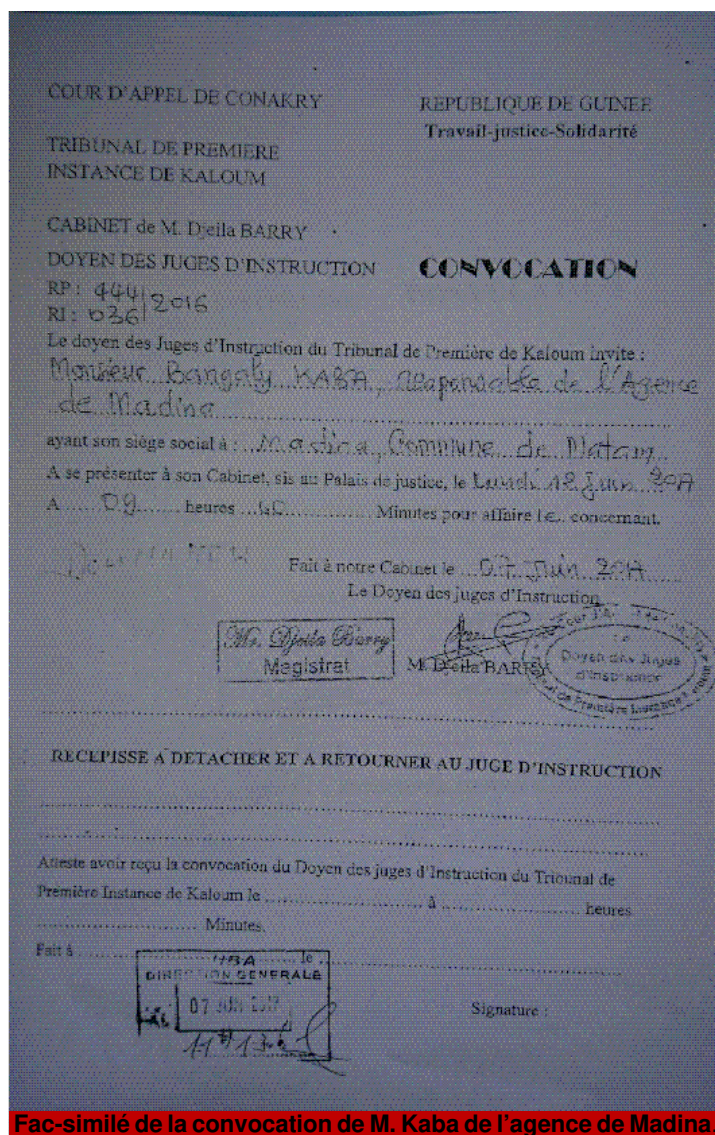 COUR D'APPEL DE CONAKRY
REPUBLIQUE DE GUINEE
Travail-justice-Solidarité
TRIBUNAL DE PREMIERE
INSTANCE DE KALOUM
CABINET de M. Djeila BARRY
DOYEN DES JUGES D'INSTRUCTION
CONVOCATION
RP : 444/2016
RI : 036/
Le doyen des Juges d'Instruction du Tribunal de Première de Kaloum invite :
Monsieur Bangaly KABA, responsable de l'Agence
de Madina
ayant son siège social à : Madina, Commune de Matam
A se présenter à son Cabinet, sis au Palais de justice, le Lundi 12 Juin 2017
A 09 heures Minutes pour affaire le concernant.
Fait à notre Cabinet le 07 Juin 2017
Le Doyen des juges d'Instruction
Mr. Djeila Barry
Magistrat
M. Djeila BARRY
Doyen des Juges
d'Instruction
de Première Instance
RECEPISSE A DETACHER ET A RETOURNER AU JUGE D'INSTRUCTION
Atteste avoir reçu la convocation du Doyen des juges d'Instruction du Tribunal de
Première Instance de Kaloum le à heures
Minutes.
Fait à le
DIRECTION GENERALE
07 JUN 2017
Signature :
Fac-similé de la convocation de M. Kaba de l'agence de Madina